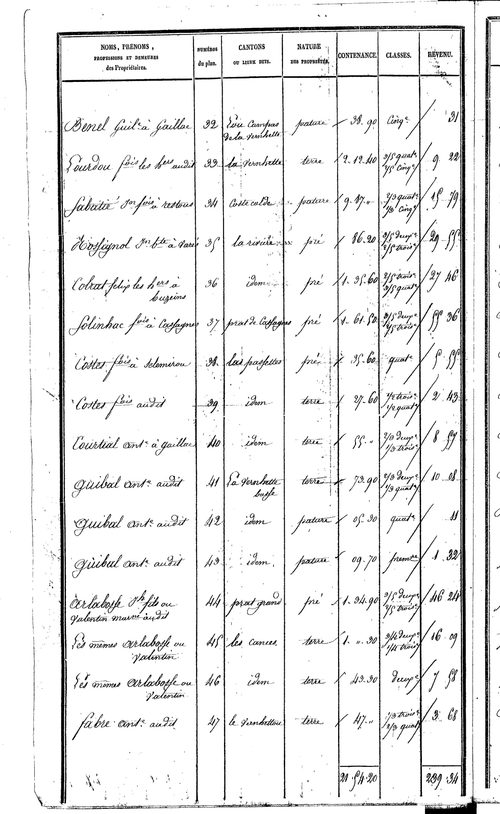 NOMS, PRÉNOMS, PROFESSIONS ET DEMEURES des Propriétaires. NUMÉROS du plan. CANTONS OU LIEUX DITS. NATURE DES PROPRIÉTÉS. CONTENANCE. CLASSES. REVENU.
Benel Guil.e à Gaillac 32 Lou Campas de la Vernhette pature 38.90 Cinq.e 31
Lourdou fois les hers audit 33 la Vernhette terre 2.12.40 3/5 quat.e 2/5 Cinq.e 9 22
Sabatié fois à 34 Coste calde pature 9.47.. 2/3 quat.e 1/3 Cinq.e 15 79
Rossignol 35 la rivière pré 86.20 3/5 deux.e 2/5 trois.e 29 55
Colrat felix les hers à buzeins 36 idem pré 1.35.60 2/5 trois.e 3/5 quat.e 27 46
Solinhac fois à Cassagnes 37 prat de Cassagnes pré 1.61.50 3/5 deux.e 2/5 trois.e 55 36
Costes fois à 38 las passettes pré 35.60 quat.e 5 55
Costes fois audit 39 idem terre 27.60 1/2 trois.e 1/2 quat.e 2 43
Courtial ant.e à gaillac 40 idem terre 55.. 2/3 deux.e 1/3 trois.e 8 57
Guibal ant.e audit 41 La Vernhette basse terre 73.90 2/3 deux.e 1/3 quat.e 10 08
Guibal ant.e audit 42 idem pature 05.30 quat.e 11
Guibal ant.e audit 43 idem pature 09.70 prem.re 1 32
Arlabosse ou valentin audit 44 prat grand pré 1.34.90 3/5 deux.e 2/5 trois.e 46 24
Les mêmes Arlabosse ou Valentin 45 les cances terre 1...30 3/4 deux.e 1/4 trois.e 16 09
Les mêmes Arlabosse ou Valentin 46 idem terre 43.30 deux.e 7 58
Fabre ant.e audit 47 le Vernhettou terre 47.. 1/3 trois.e 2/3 quat.e 3 68
21.54.20 239.34